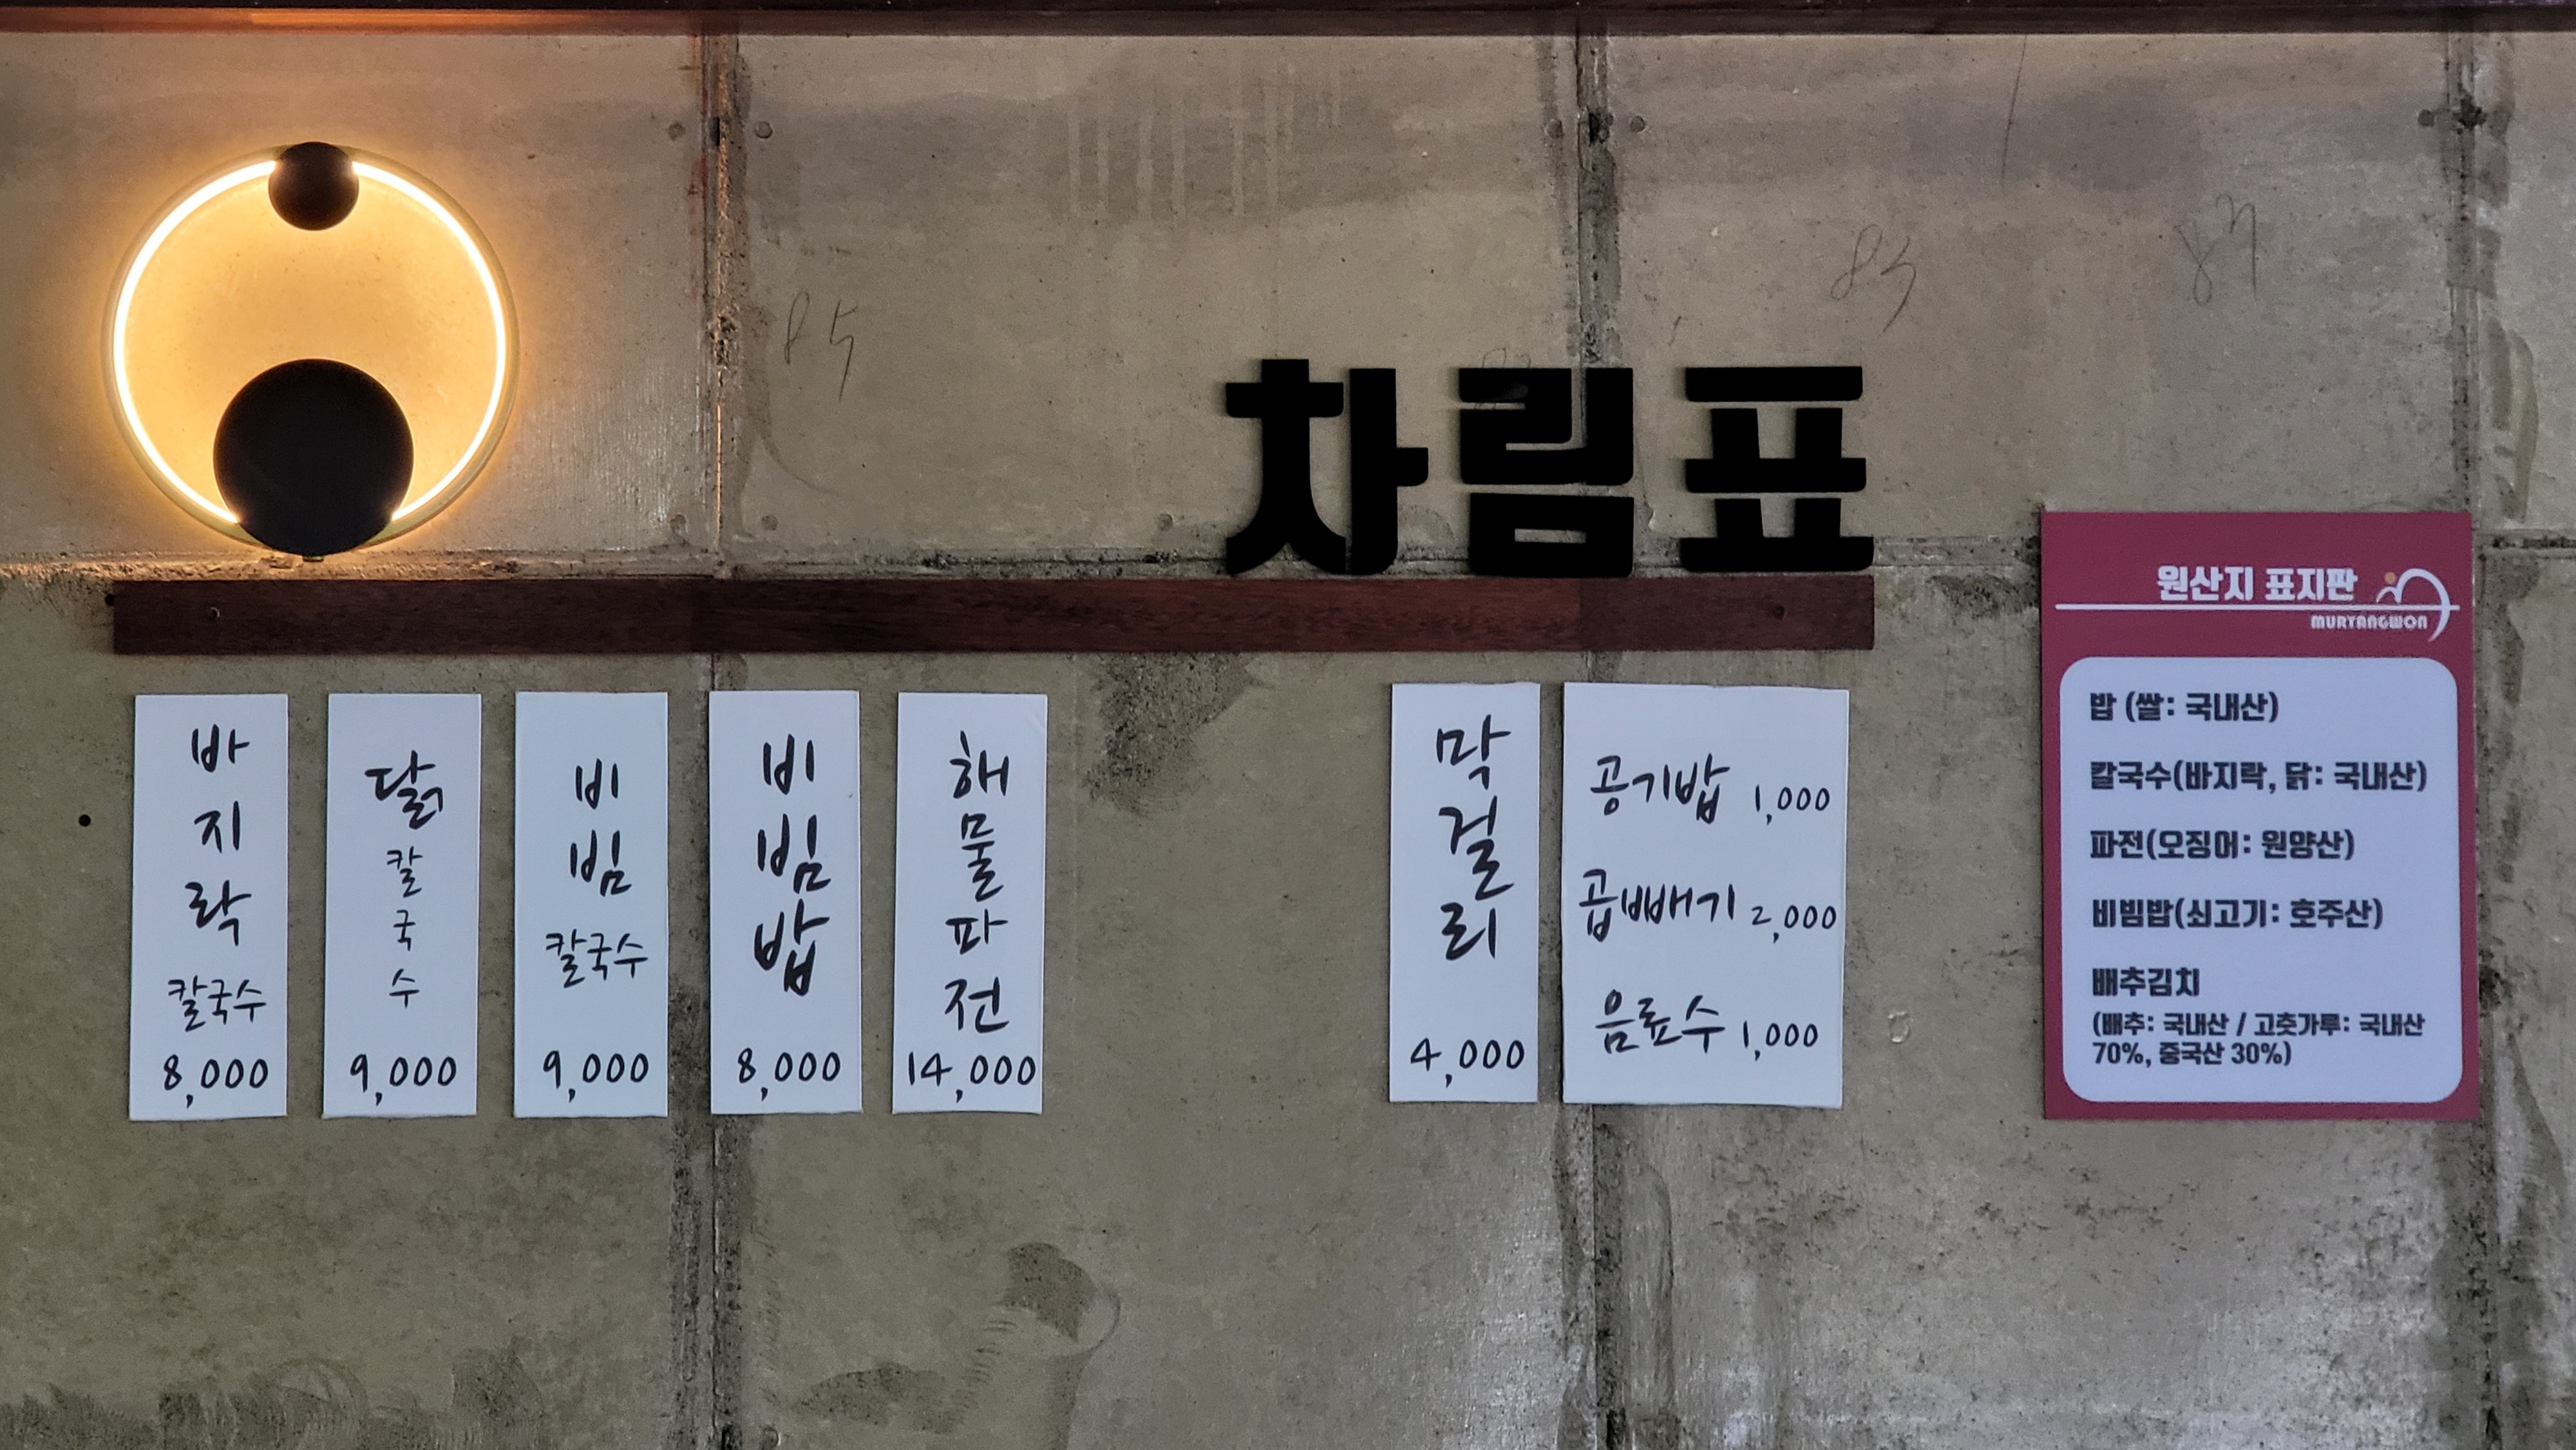 85
83
87
차림표
바지락 칼국수
8,000
닭칼국수
9,000
비빔 칼국수
9,000
비빔밥
8,000
해물파전
14,000
막걸리
4,000
공기밥 1,000
곱빼기 2,000
음료수 1,000
원산지 표지판
MURYANGWON
밥 (쌀: 국내산)
칼국수(바지락, 닭: 국내산)
파전(오징어: 원양산)
비빔밥(쇠고기: 호주산)
배추김치
(배추: 국내산 / 고춧가루: 국내산
70%, 중국산 30%)